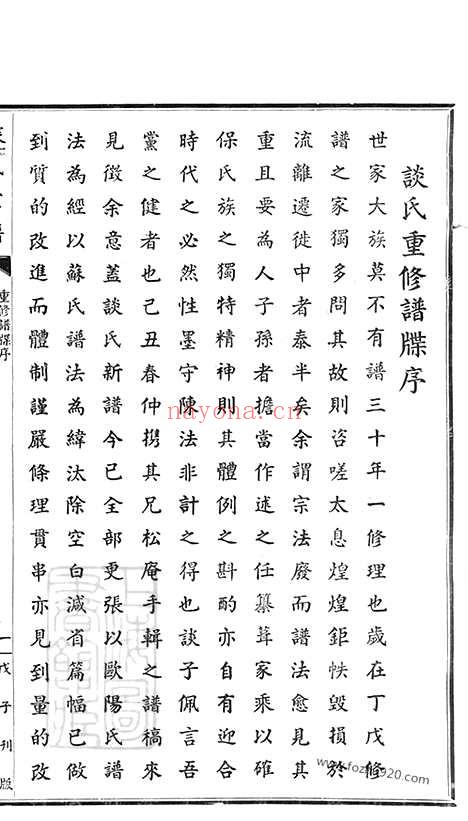 談氏重修譜牒序
世家大族莫不有譜三十年一修理也歲在丁戊修
譜之家獨多問其故則咨嗟太息煌煌鉅帙毀損於
流離遷徙中者泰半矣余謂宗法廢而譜法愈見其
重且要為人子孫者擔當作述之任纂葺家乘以確
保氏族之獨特精神則其體例之斟酌亦自有迎合
時代之必然性墨守陳法非計之得也談子佩言吾
黨之健者也己丑春仲携其兄松庵手輯之譜稿來
見徵余意蓋談氏新譜今已全部更張以歐陽氏譜
法為經以蘇氏譜法為緯汰除空白減省篇幅已做
到質的改進而體制謹嚴條理貫串亦見到量的改
重修譜牒序
一
戊子刊版
nayona.cn
www.fozhu920.com